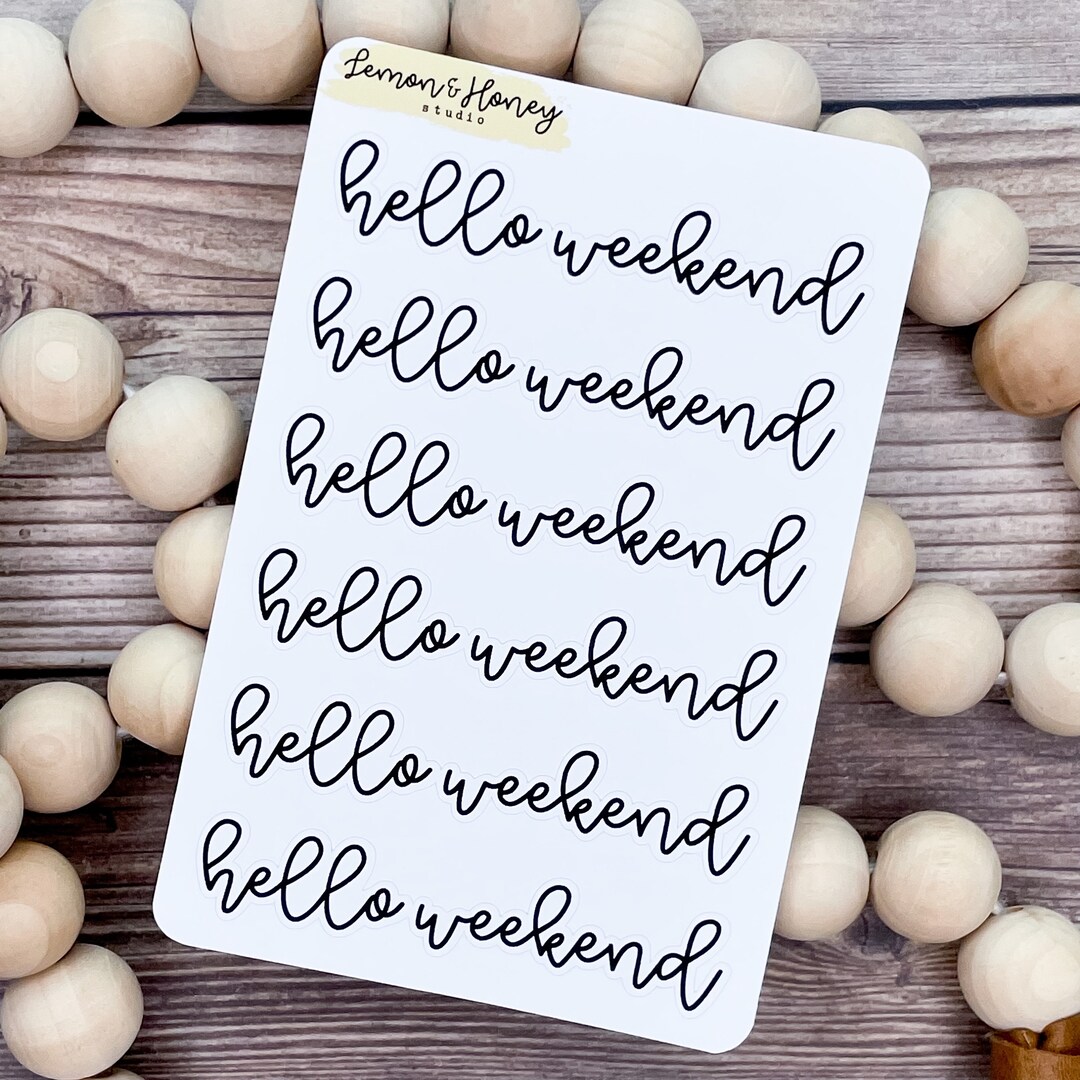 Lemon & Honey
studio
hello weekend
hello weekend
hello weekend
hello weekend
hello weekend
hello weekend